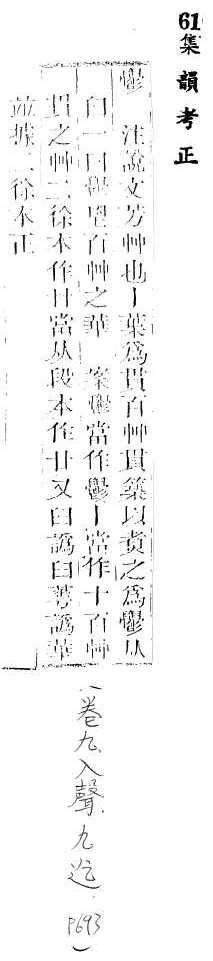 61
集韻考正
鬱 注說文芳艸也丨葉爲貫百艸貫築以煑之爲鬱从
臼一曰鬱鬯百艸之華 案鬱當作鬱丨當作十百艸
貫之艸二徐本作廿當从段本作廿又臼譌臼蕚譌華
竝據二徐本正
(卷九入聲.九迄 P693)